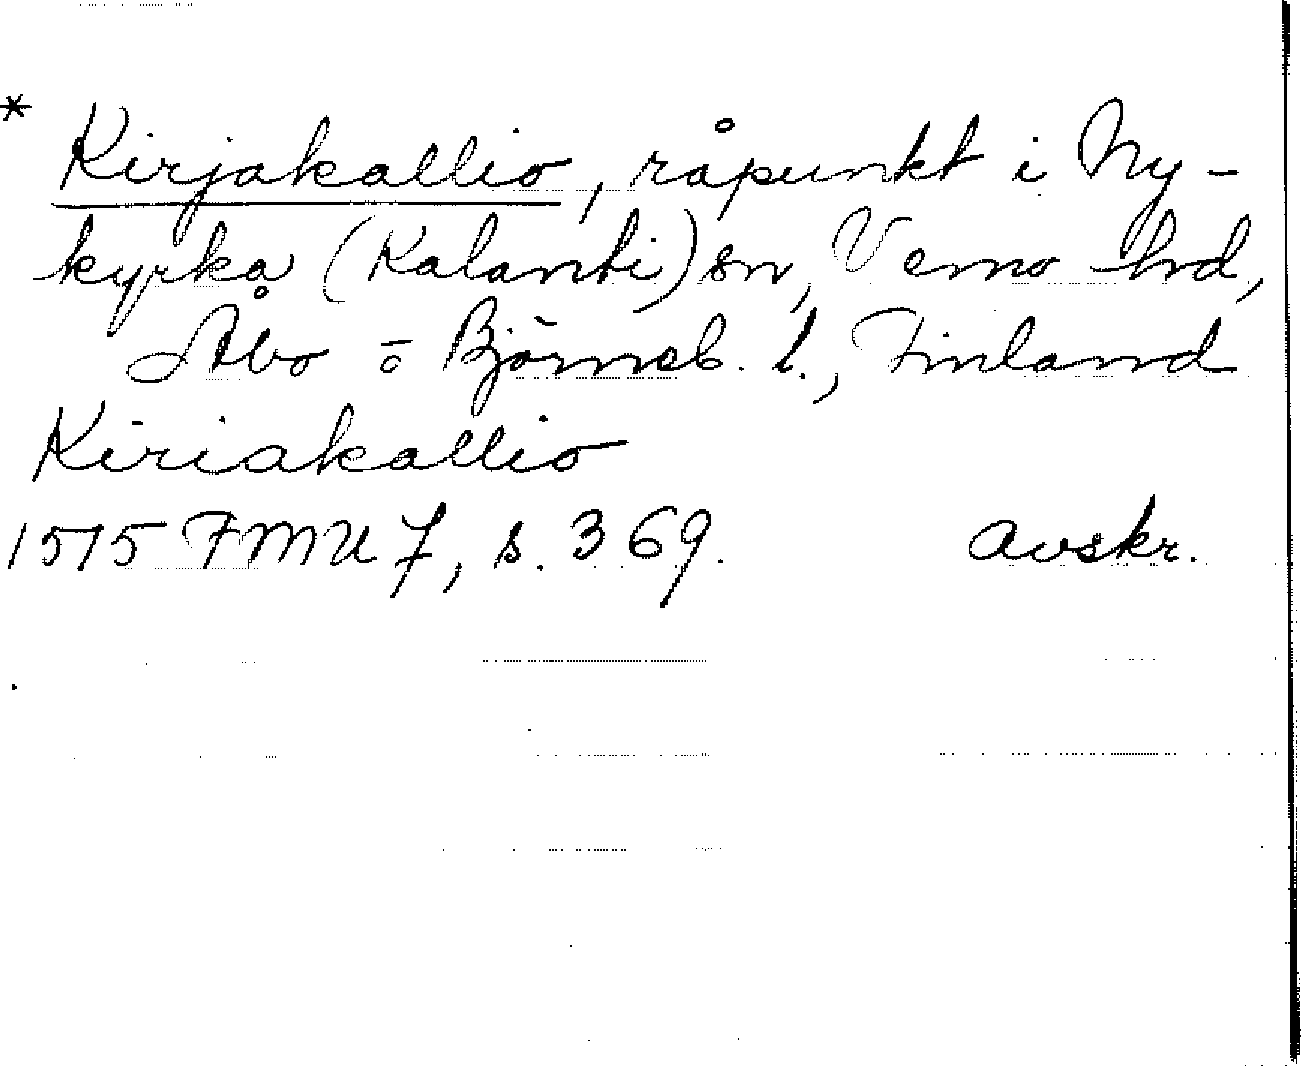 * Kirjakallio, råpunkt i Ny-
kyrka (Kalanti) sn, Vemo hd,
Åbo o Björneb. l., Finland
Kiriakallio
1515 FMU 7, s. 369. Avskr.